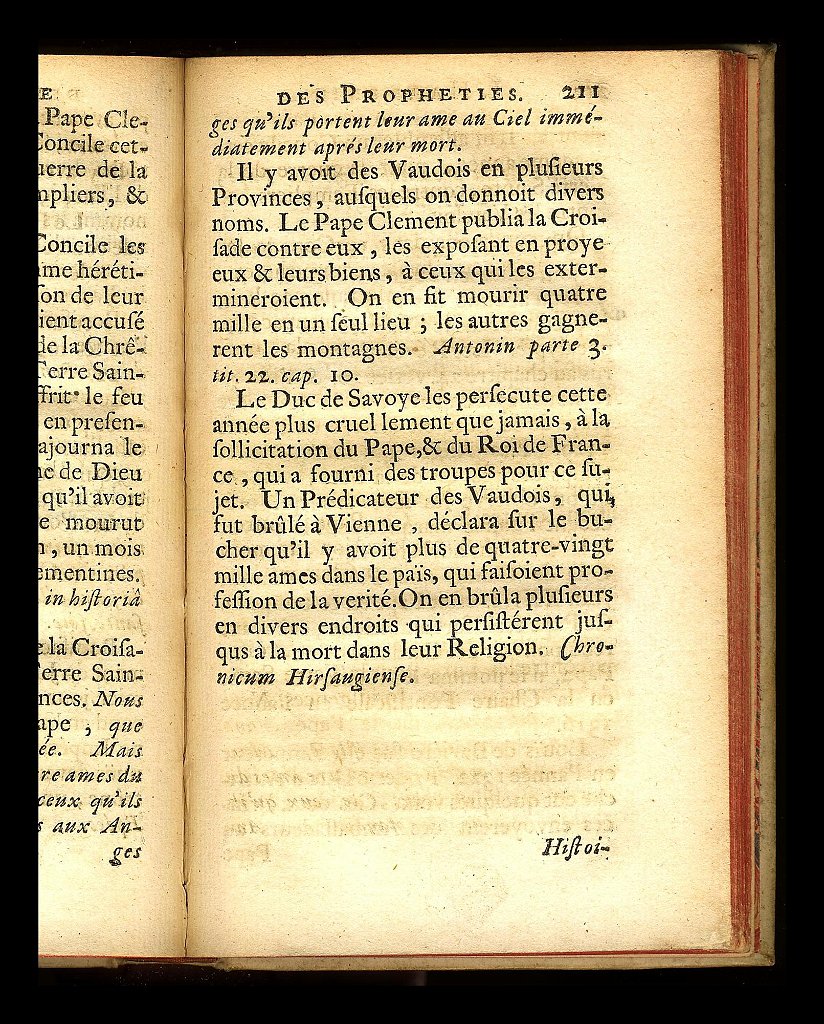 E
Pape Cle-
Concile cet-
uerre de la
mpliers, &
Concile les
me héréti-
ſon de leur
ient accuſé
de la Chrê-
Terre Sain-
ffrit le feu
en preſen-
ajourna le
ne de Dieu
qu'il avoit
e mourut
n, un mois
ementines.
in hiſtoriâ
e la Croiſa-
Terre Sain-
nces. Nous
ape, que
ée. Mais
re ames du
ceux qu'ils
s aux An-
ges
DES PROPHETIES. 211
ges qu'ils portent leur ame au Ciel immé-
diatement aprés leur mort.
Il y avoit des Vaudois en pluſieurs
Provinces, auſquels on donnoit divers
noms. Le Pape Clement publia la Croi-
ſade contre eux, les expoſant en proye
eux & leurs biens, à ceux qui les exter-
mineroient. On en fit mourir quatre
mille en un ſeul lieu ; les autres gagne-
rent les montagnes. Antonin parte 3.
tit. 22. cap. 10.
Le Duc de Savoye les perſecute cette
année plus cruel lement que jamais, à la
ſollicitation du Pape,& du Roi de Fran-
ce, qui a fourni des troupes pour ce ſu-
jet. Un Prédicateur des Vaudois, qui
fut brûlé à Vienne, déclara ſur le bu-
cher qu'il y avoit plus de quatre-vingt
mille ames dans le païs, qui faiſoient pro-
feſſion de la verité. On en brûla pluſieurs
en divers endroits qui perſiſtérent juſ-
qus à la mort dans leur Religion. Chro-
nicum Hirſaugienſe.
Hiſtoi-